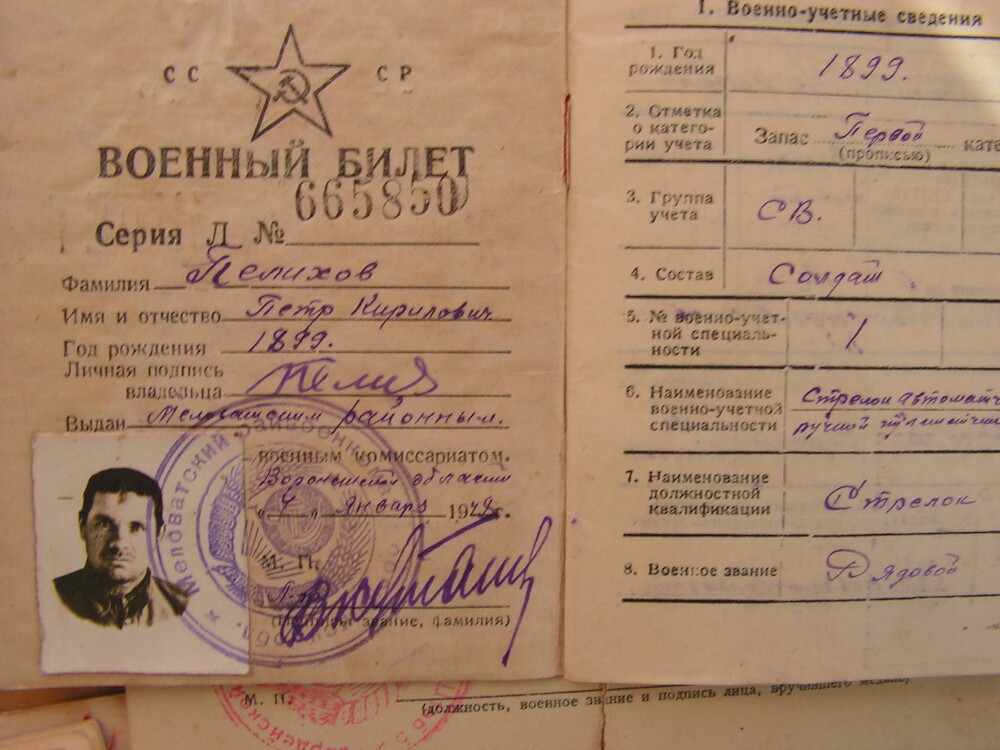 СС СР
ВОЕННЫЙ БИЛЕТ
665850
Серия Д №
Фамилия Пелихов
Имя и отчество Петр Кирилович
Год рождения 1899.
Личная подпись
владельца Пелих
Выдан Меловатским районным.
военным комиссариатом.
Воронежской области
"4" января 1949г.
М. П.
звание, фамилия)
Меловатский райвоенком
М. П.
(должность, военное звание и подпись лица, вручившего медаль)
I. Военно-учетные сведения
1. Год
рождения 1899.
2. Отметка
о катего-
рии учета Запас Первой кате
(прописью)
3. Группа
учета СВ.
4. Состав Солдат
5. № военно-учет-
ной специаль-
ности 1
6. Наименование
военно-учетной
специальности Стрелок автоматч
ручной
7. Наименование
должностной
квалификации Стрелок
8. Военное звание Рядовой